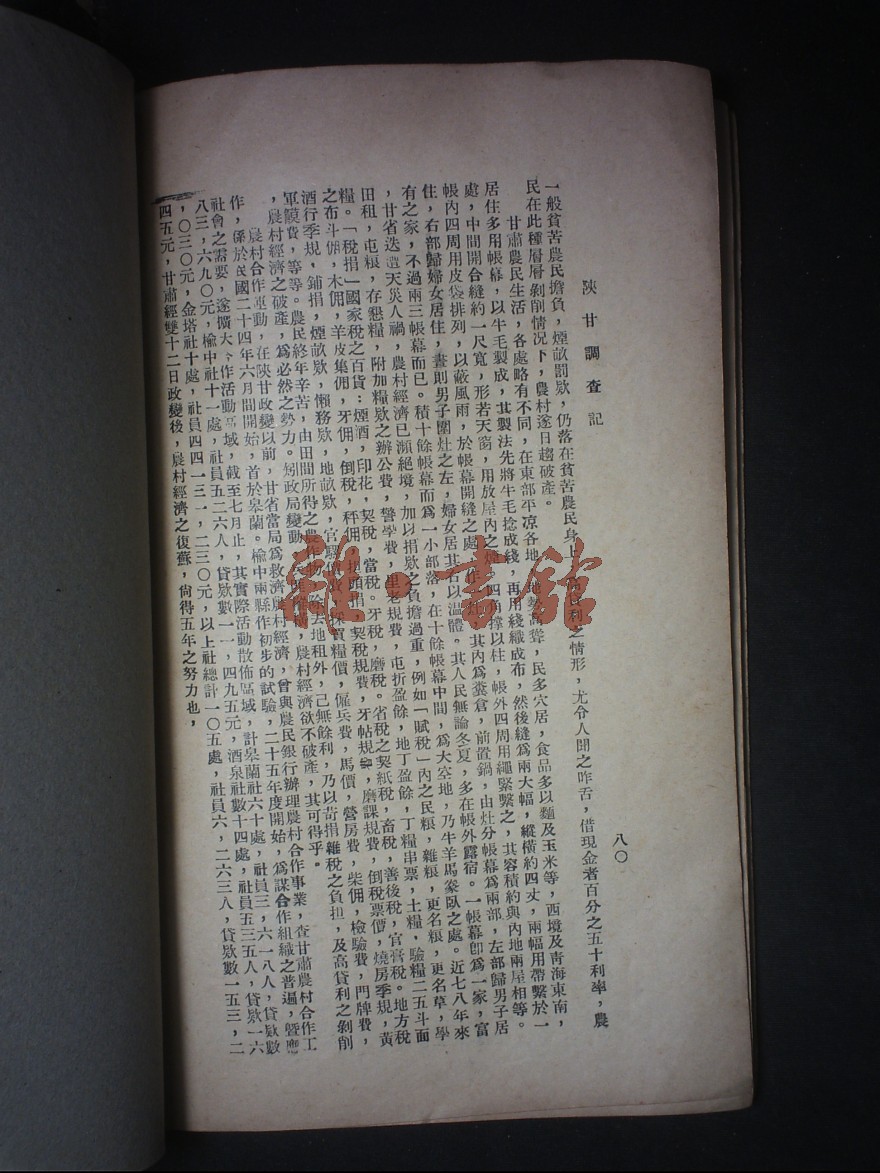 陝甘調查記
八〇
一般貧苦農民擔負，煙畝罰欵，仍落在貧苦農民身上，高貸利之情形，尤令人聞之咋舌，借現金者百分之五十利率，農
民在此種層層剝削情況下，農村遂日趨破產。
甘肅農民生活，各處略有不同，在東部平凉各地，地勢高聳，民多穴居，食品多以麵及玉米等，西境及靑海東南，
居住多用帳幕，以牛毛製成，其製法先將牛毛捻成綫，再用綫織成布，然後縫為兩大幅，縱橫約四丈，兩幅用帶繫於一
處，中間開合縫約一尺寬，形若天窗，用放屋內之，四角撐以柱，帳外四周用繩緊繫之，其容積約與內地兩屋相等。
帳內四周用皮袋排列，以蔽風雨，於帳幕開縫之處，作，其內為糞倉，前置鍋，由灶分帳幕為兩部，左部歸男子居
住，右部歸婦女居住，晝則男子圍灶之左，婦女居其右以温體。其人民無論冬夏，多在帳外露宿。一帳幕卽為一家，富
有之家，不過兩三帳幕而已。積十餘帳幕而為一小部落，在十餘帳幕中間，為大空地，乃牛羊馬豢臥之處。近七八年來
，甘省迭遭天災人禍，農村經濟已瀕絕境，加以捐欵之負擔過重，例如「賦稅」內之民粮，雜粮，更名粮，更名草，學
田租，屯粮，存懇糧，附加糧欵之辦公費，警學費，里老規費，屯折盈餘，地丁盈餘，丁糧串票，土糧，驗糧二五斗面
糧。「稅捐」國家稅之百貨：煙酒，印花，契稅，當稅。牙稅，磨稅。省稅之契紙稅，畜稅，善後稅，官膏稅。地方稅
之布斗佣，木佣，羊皮集佣，牙佣，倒稅，秤佣，捐頭捐，契稅規費，牙帖規費，磨課規費，倒稅票價，燒房季規，黃
酒行季規，鋪捐，煙畝欵，懶務欵，地畝欵，官騾價費，採買糧價，僱兵費，馬價，營房費，柴佣，檢驗費，門牌費，
軍饃費，等等。農民終年辛苦，由田間所得之農作物，除去地租外，己無餘利，乃以苛捐雜稅之負担，及高貸利之剝削
，農村經濟之破產，為必然之勢力。矧政局變動，農村經濟欲不破產，其可得乎。
農村合作運動，在陝甘政變以前，甘省當局為救濟農村經濟，曾與農民銀行辦理農村合作事業，查甘肅農村合作工
作，係於民國二十四年六月間開始，首於皋蘭。榆中兩縣作初步的試驗，二十五年度開始，為謀合作組織之普遍，曁應
社會之需要，遂擴大合作活動區域，截至七月止，其實際活動散佈區域，計皋蘭社六十處，社員三，六一八人，貸欵數
八三，六九〇元，榆中社十一處，社員五二六人，貸欵數一一，四九五元，酒泉社數十四處，社員五三五人，貸欵一六
，〇三〇元，金塔社十處，社員四四一三一，二三〇元，以上社總計一〇五處，社員六，二六三人，貸欵數一五三，二
四五元，甘肅經雙十二日政變後，農村經濟之復蘇，尙得五年之努力也，
雜·書館